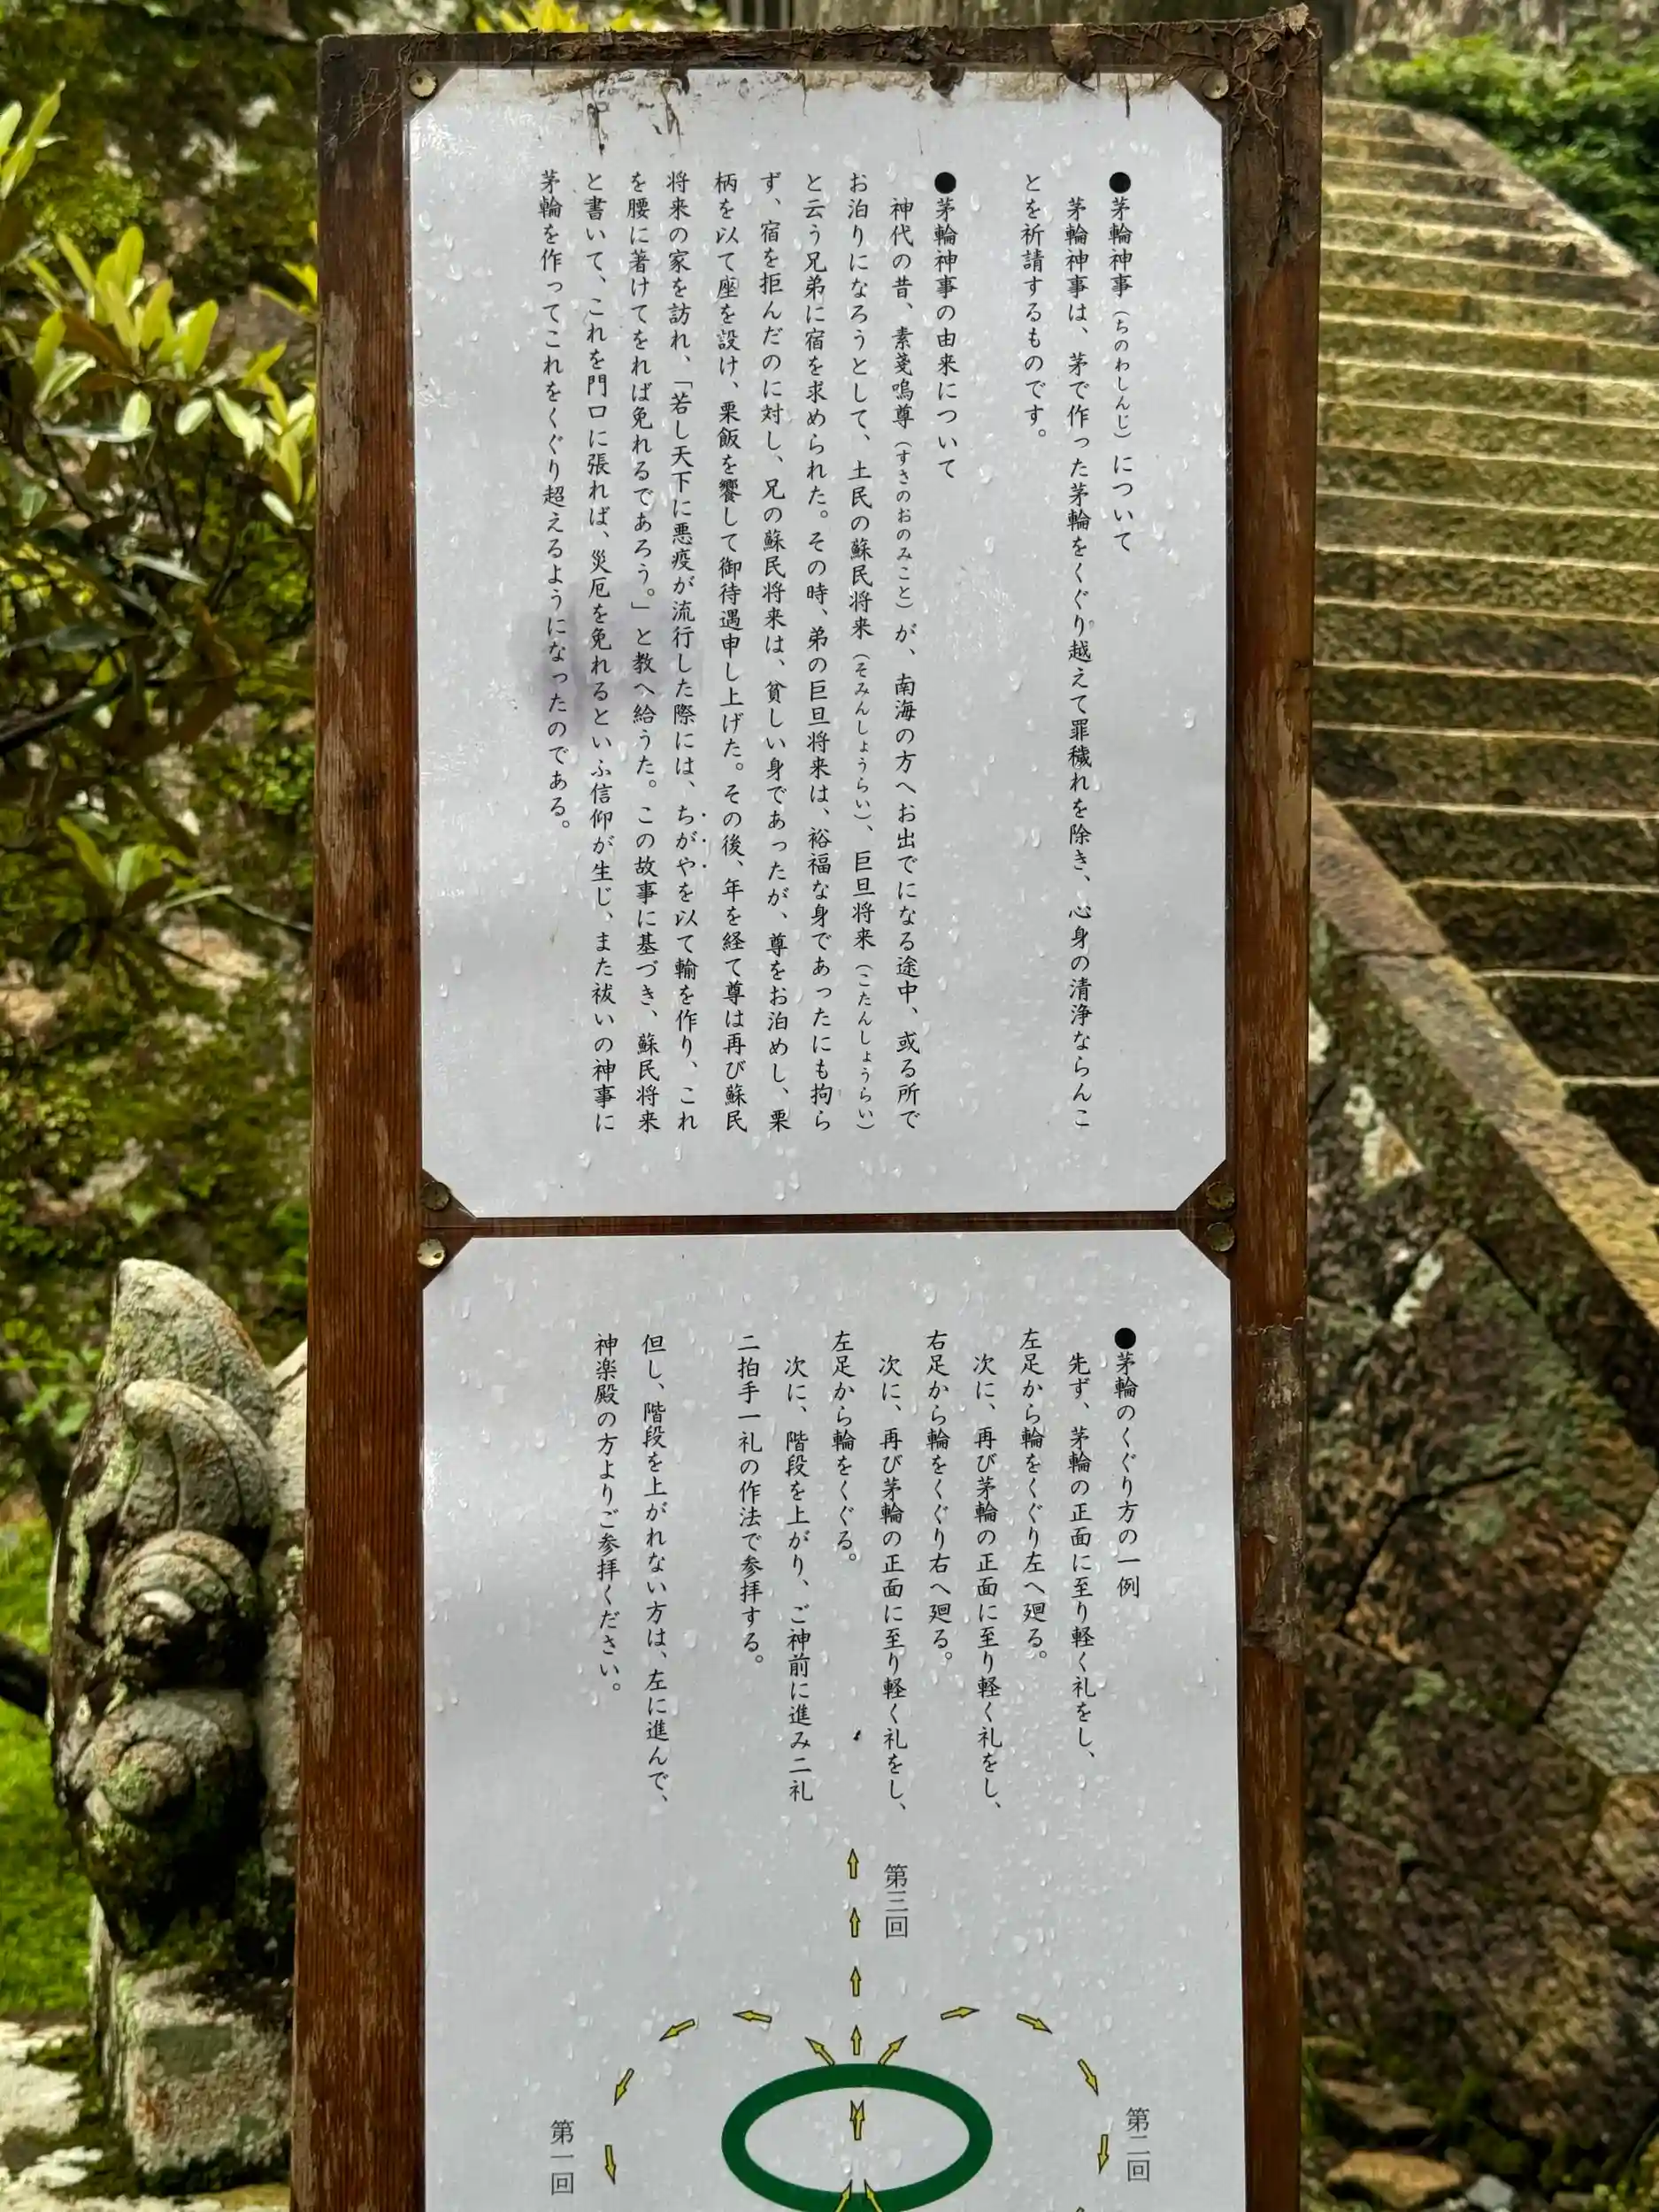 ●茅輪神事（ちのわしんじ）について
茅輪神事は、茅で作った茅輪をくぐり越えて罪穢れを除き、心身の清浄ならんこ
とを祈請するものです。
●茅輪神事の由来について
神代の昔、素戔嗚尊（すさのおのみこと）が、南海の方へお出でになる途中、或る所で
お泊りになろうとして、土民の蘇民将来（そみんしょうらい）、巨旦将来（こたんしょうらい）
と云う兄弟に宿を求められた。その時、弟の巨旦将来は、裕福な身であったにも拘ら
ず、宿を拒んだのに対し、兄の蘇民将来は、貧しい身であったが、尊をお泊めし、栗
柄を以て座を設け、栗飯を饗して御待遇申し上げた。その後、年を経て尊は再び蘇民
将来の家を訪れ、「若し天下に悪疫が流行した際には、ちがやを以て輪を作り、これ
を腰に著けてをれば免れるであろう。」と教へ給うた。この故事に基づき、蘇民将来
と書いて、これを門口に張れば、災厄を免れるといふ信仰が生じ、また祓いの神事に
茅輪を作ってこれをくぐり超えるようになったのである。
●茅輪のくぐり方の一例
先ず、茅輪の正面に至り軽く礼をし、
左足から輪をくぐり左へ廻る。
次に、再び茅輪の正面に至り軽く礼をし、
右足から輪をくぐり右へ廻る。
次に、再び茅輪の正面に至り軽く礼をし、
左足から輪をくぐる。
次に、階段を上がり、ご神前に進み二礼
二拍手一礼の作法で参拝する。
但し、階段を上がれない方は、左に進んで、
神楽殿の方よりご参拝ください。
第三回
第二回
第一回